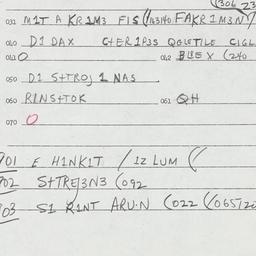 (1306 23
031 M1T A KR1M3 F1S (1/43140 FAKR1M3N7
040 D1 DAX CHER1P3S QGLETILE CIGL
041 O 042 BLE X (240
050 D1 S+TROJ 1 NAS
060 R1NS+TOK 061 QH
070 O
701 E H1NK1T / 1Z LUM (
702 S+TREJ3N3 (092
703 S1 R1NT ARUN (022 (/0657/20